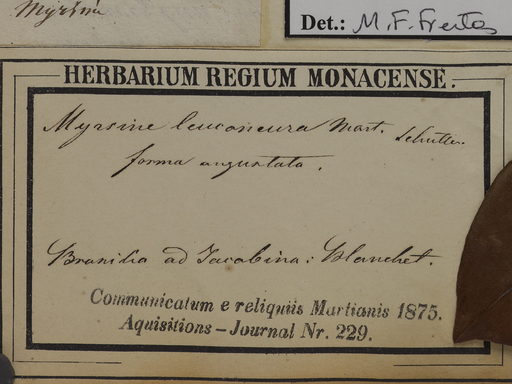 Myrsine
Det.: M. F. Freitas
HERBARIUM REGIUM MONACENSE.
Myrsine leuconeura Mart.
forma angustata.
Brasilia ad Jacobina: Blanchet.
Communicatum e reliquiis Martianis 1875.
Aquisitions-Journal Nr. 229.